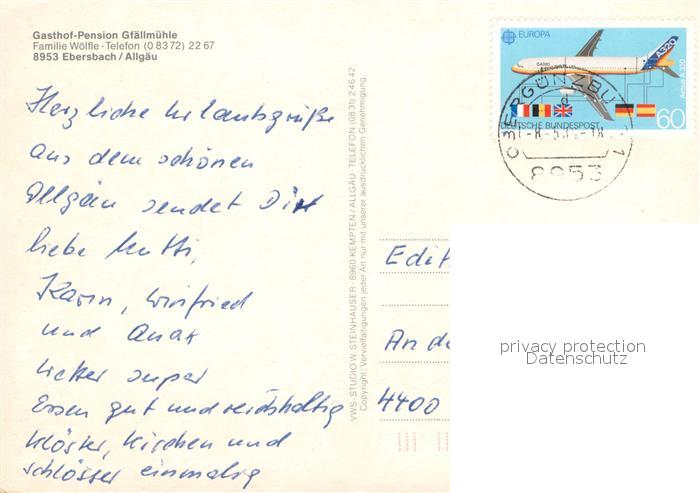 Gasthof-Pension Gfällmühle
Familie Wölfle · Telefon (0 83 72) 22 67
8953 Ebersbach / Allgäu
Herzliche Urlaubsgrüße
aus dem schönen
Allgäu sendet Dir
liebe Mutti,
Karin, Winfried
und Anak
Wetter super
Essen gut und reichhaltig
Klöster, Kirchen und
Schlösser einmalig
VWS-STUDIO W. STEINHAUSER · 8960 KEMPTEN / ALLGÄU · TELEFON (08 31) 2 46 42
Copyright: Vervielfältigungen jeder Art nur mit unserer ausdrücklichen Genehmigung.
EUROPA
A320
Airbus A 320
60
DEUTSCHE BUNDESPOST
OBERGÜNZBU
1
8953
Edit
An de
4400
privacy protection
Datenschutz